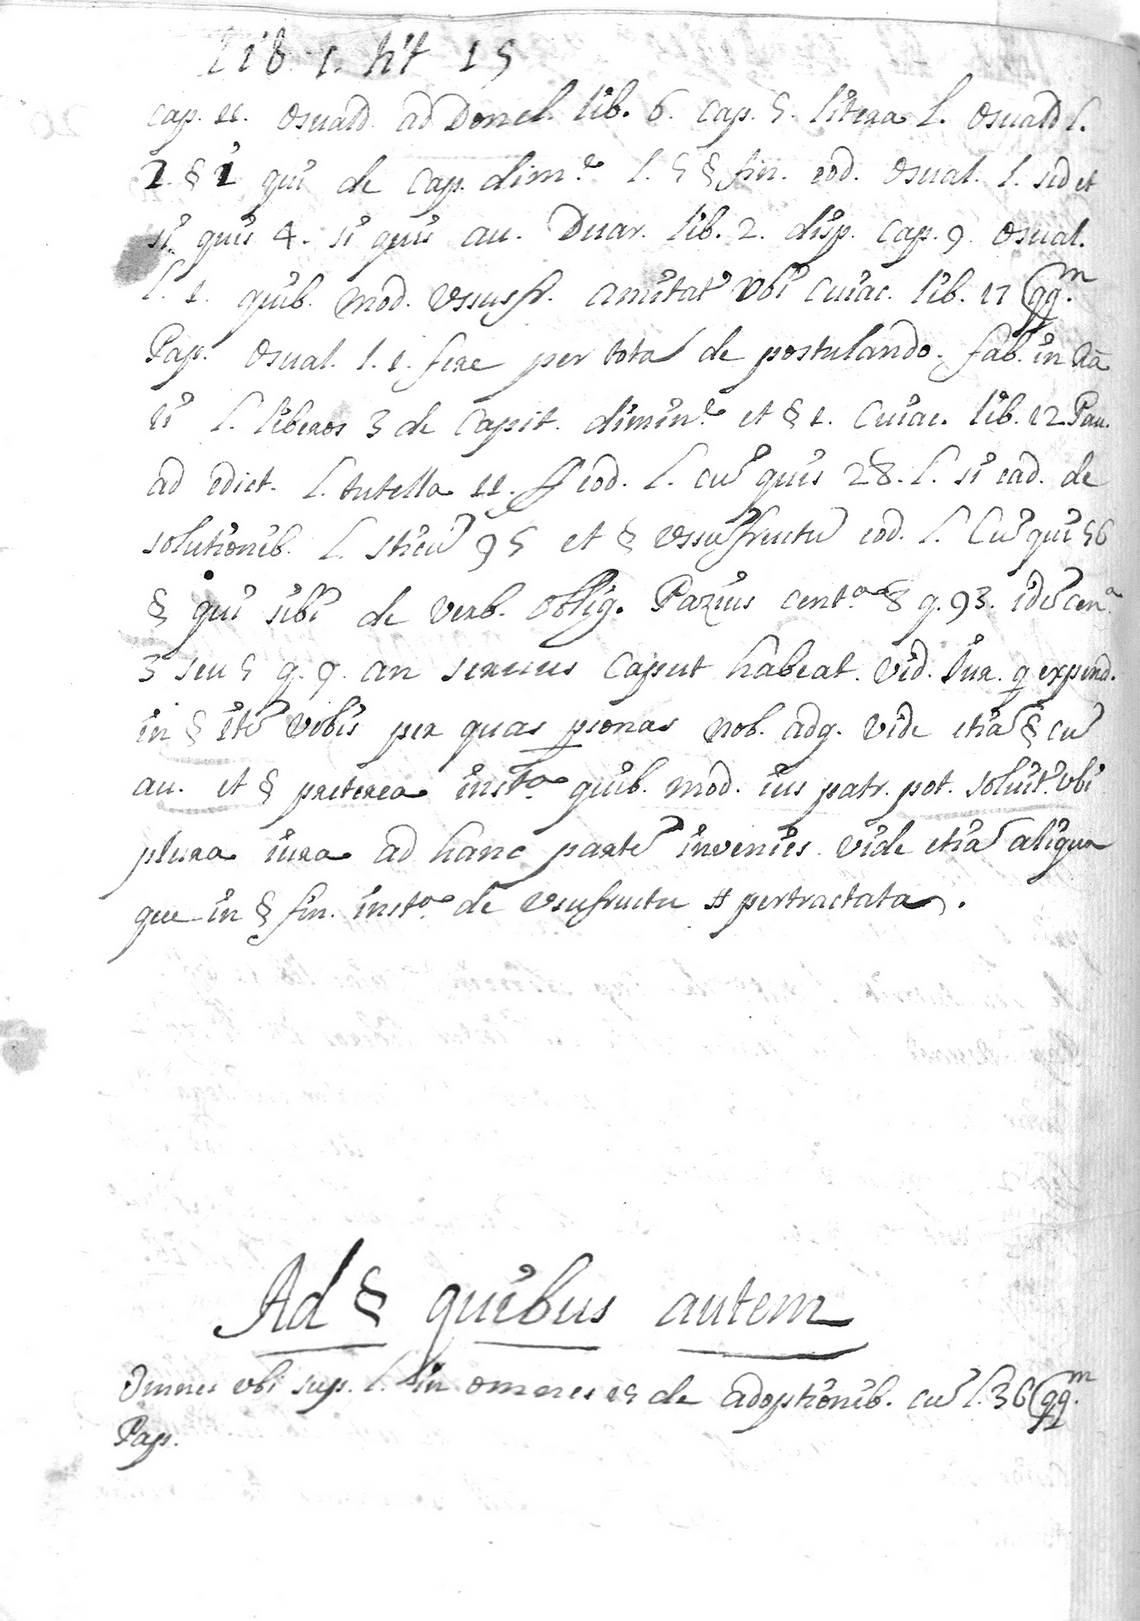 Lib. 1. tit 15
cap. 11. Osuald. ad Donel. lib. 6. cap. 5. litera L. Osuald l.
1. § 1 qui de cap. dim.e l. 5 § fin. eod. Osual. l. sed et
si quis 4. si quis au. Duar. lib. 2. disp. cap. 9. Osual.
l. 1. quib. mod. vssusfr. amitat vbi Cuiac. lib. 17 qq.m
Pap. Osual. l. 1. fere per tota de postulando. fab. in Ra
ti l. liberos 3 de Capit. dimin.e et § 1. Cuiac. lib. 12 Pau.
ad edict. l. tutella 11. ff eod. l. cu quis 28. l. si ead. de
solutionib. l. sticu 95 et § vssufructu eod. l. Cu qui 56
§ qui sibi de verb. oblig. Pazius cent.a 8 q. 93. ide cen.a
3 seu 5 q. 9. an seruus caput habeat. vid. Iur. q expend.
in § ite vobis per quas psonas nob. adq. vide etia § cu
au. et § preterea inst.a quib. mod. ius patr. pot. soluit. vbi
plura iura ad hanc parte invenies. vide etia aliqua
que in § fin. inst.a de vsufructu pertractata.
Ad § quibus autem
Omnes vbi sup. l. in omnes 15 de adoptionib. cu l. 36 qq.m
Pap.